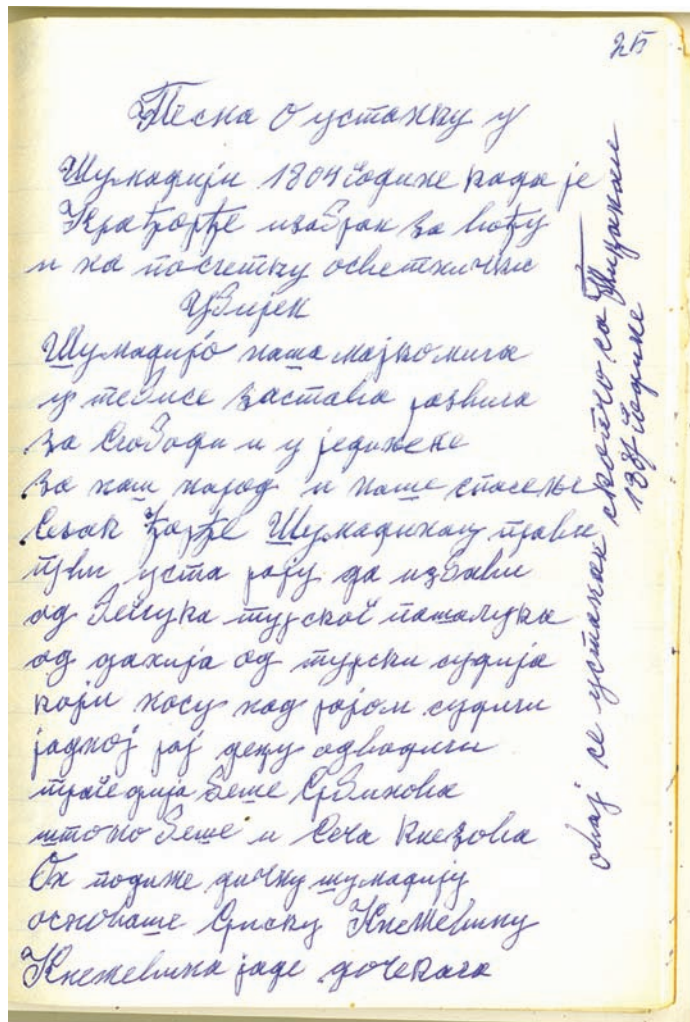 25
Песна о устанку у
Шумадији 1804 године када је
Крађорђе изабран за вођу
и на посчетку осветнички
Убијек
Шумадијо наша мајко мила
у тебисе застава развила
за слободи и у једињене
за наш народ и наше спасење
Сељак Ђорђе Шумадинац прави
први уста рају да избави
од беглука турског пашалука
од дахија од турски судија
који носу над рајом судили
јадној рај децу одводили
трагедија беше Србинова
штоно беше и Сеча Кнезова
Он подиже дичну шумадију
основаше Српску Кнежевину
Кнежевина јаде дочекала
овај се устанак скопчо са
године